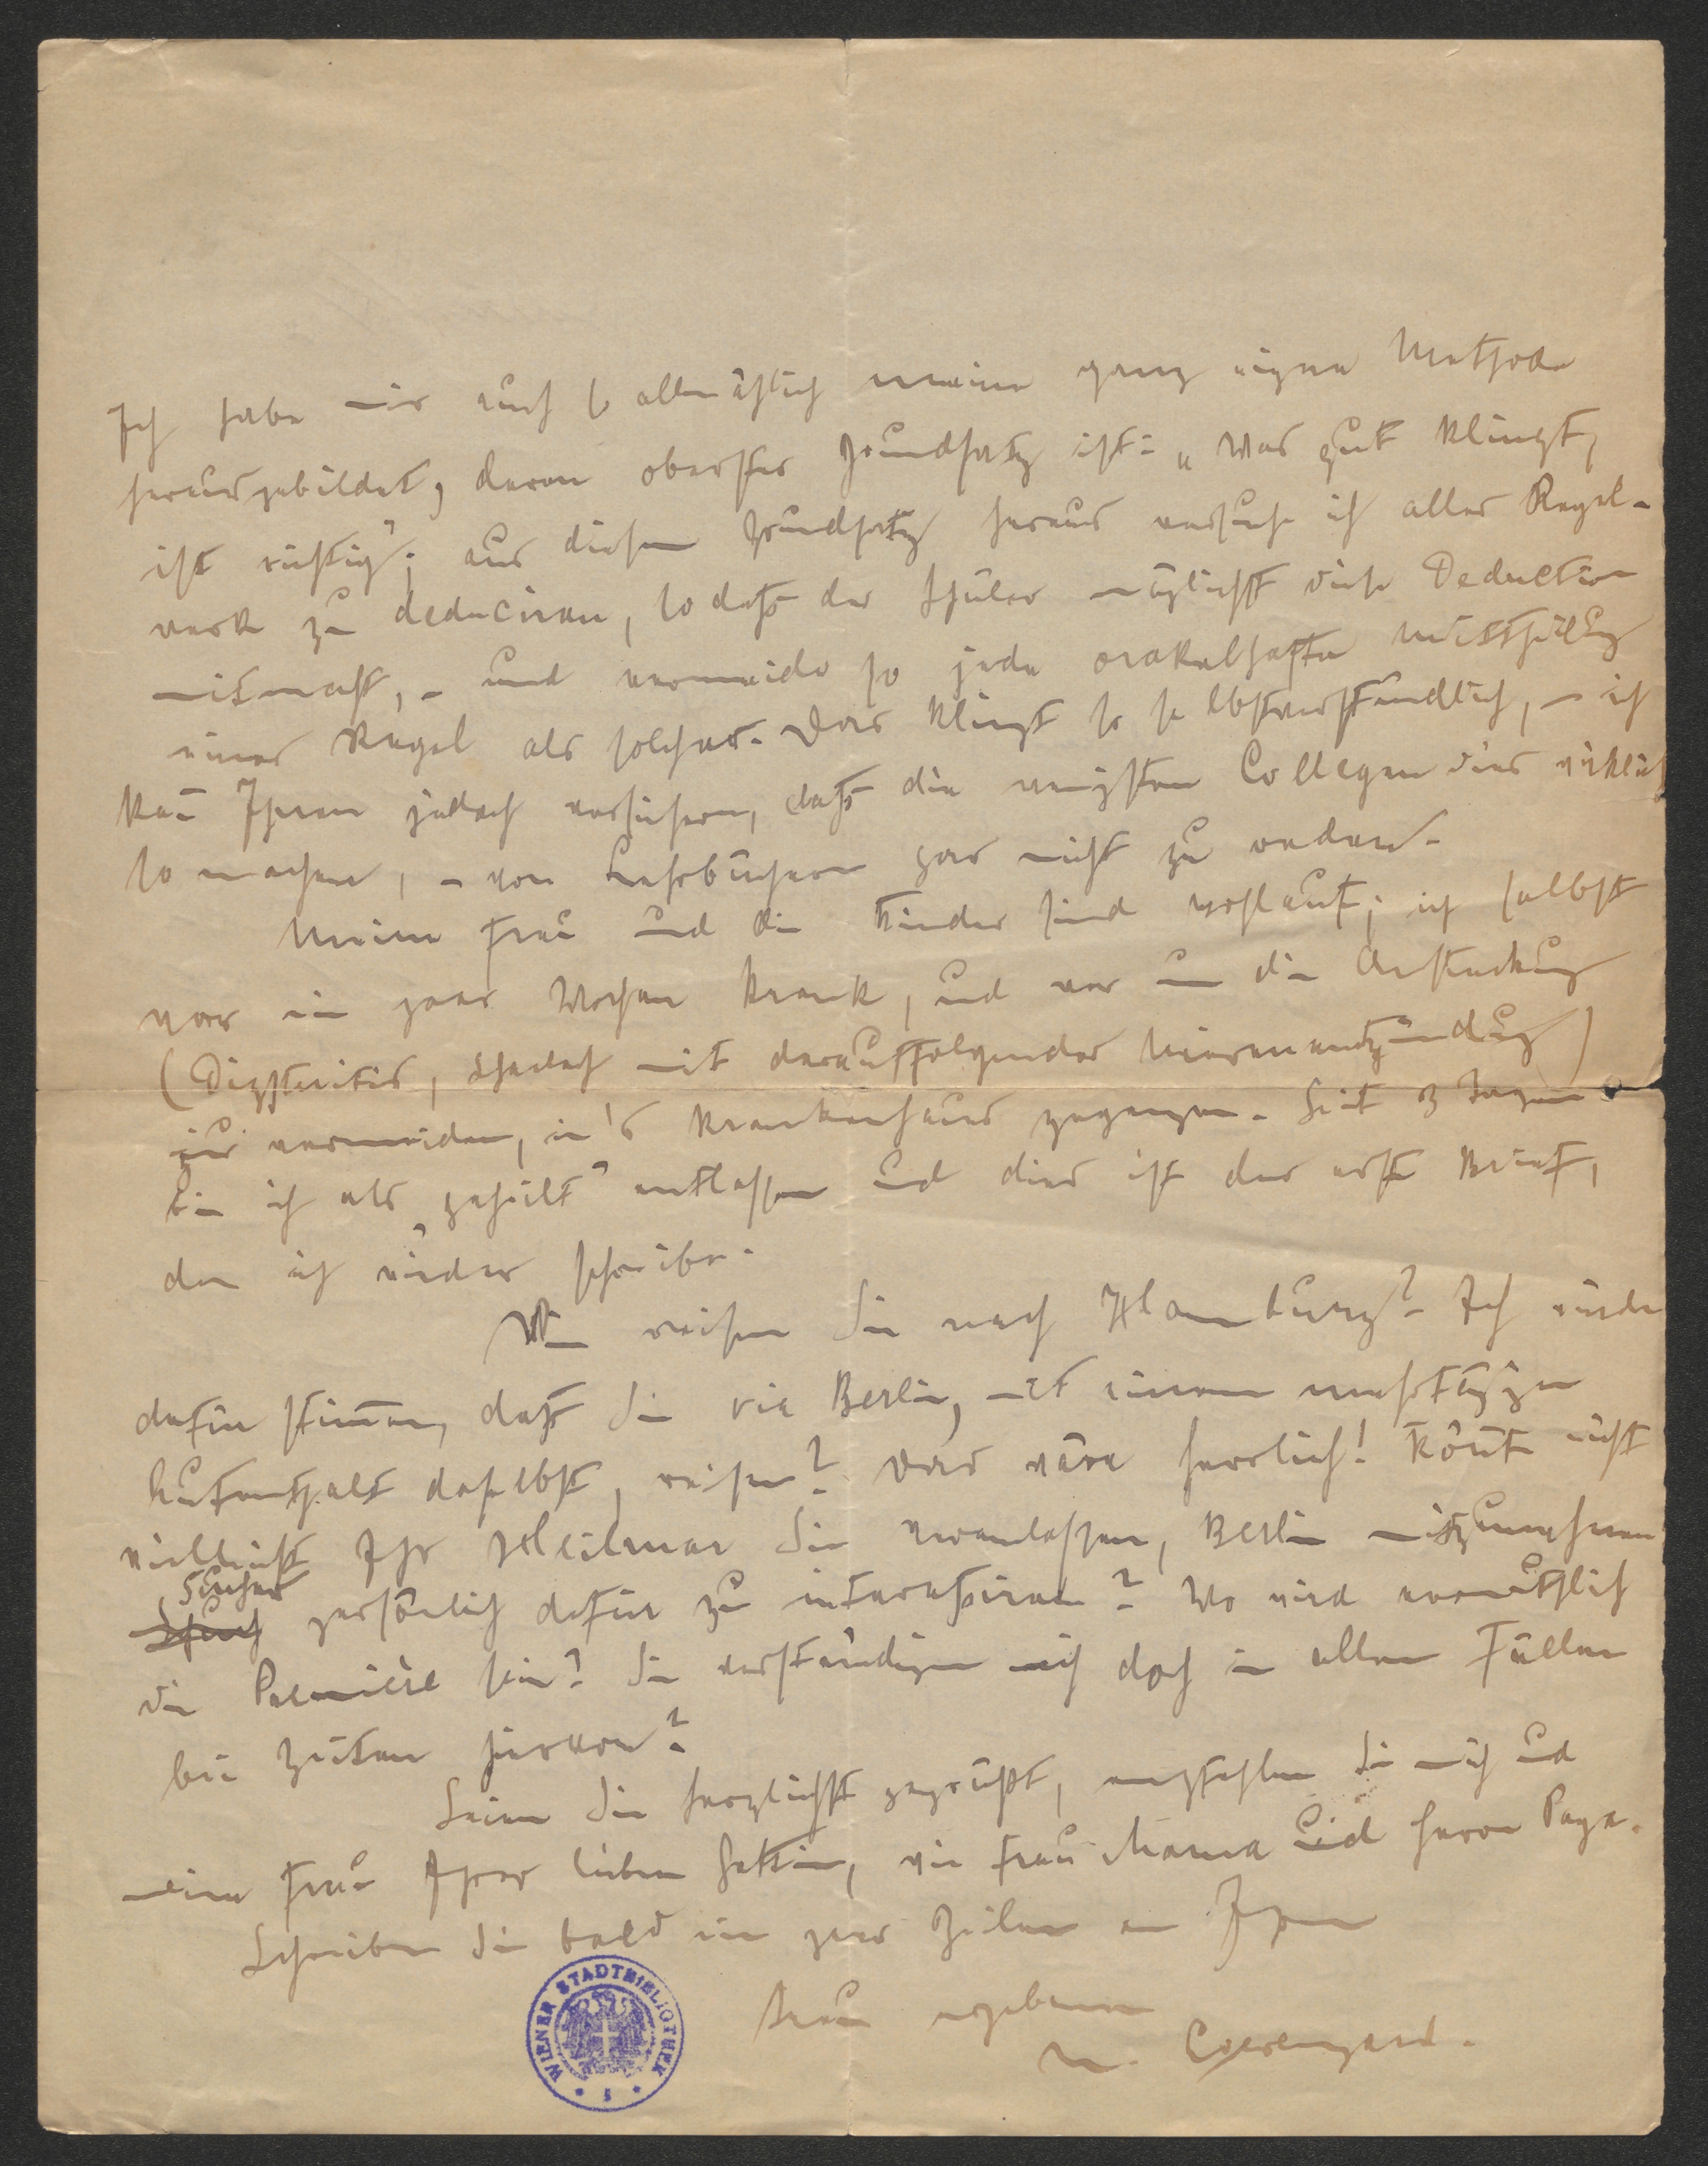 Ich habe mir auch so allmählich meine ganz eigne Methode
herausgebildet, deren oberster Grundsatz ist: „Was gut klingt,
ist richtig“; aus diesem Grundsatz heraus versuche ich alles Regel-
werk zu deduciren, so daß der Schüler möglichst diese Deduction
mitmacht, – und vermeide so jede orakelhafte Mittheilung
einer Regel als solcher. Das klingt so selbstverständlich, – ich
kan̄ Ihnen jedoch versichern, daß die wenigsten Collegen dies wirklich
so machen, – von Lehrbüchern gar nicht zu reden.
Meine Frau und die Kinder sind wohlauf; ich selbst
war ein paar Wochen krank, und war um die Ansteckung
(Diphteritis, Scharlach mit darauffolgender Nierenentzündung)
zu vermeiden, in's Krankenhaus gegangen. Seit 3 Tagen
bin ich als „geheilt“ entlassen und dies ist der erste Brief,
den ich wieder schreibe.
Wann reisen Sie nach Hamburg? Ich würde
dafür stim̄en, daß Sie via Berlin, mit einem mehrtägigen
Aufenthalt daselbst, reisen? Das wäre herrlich! Kön̄te nicht
vielleicht Ihr Heilmar Sie veranlassen, Berlin mitzunehmen
Sucher
persönlich dafür zu interessiren? Wo wird vermuthlich
die Première sein? Sie verständigen mich doch in allen Fällen
bei Zeiten hiervon?
Seien Sie herzlichst gegrüßt, empfehlen Sie mich und
meine Frau Ihrer lieben Gattin, wie Frau Mama und Herrn Papa.
Schreiben Sie bald ein paar Zeilen an Ihren
treu ergebenen
M. Loewengard.
WIENER STADTBIBLIOTHEK